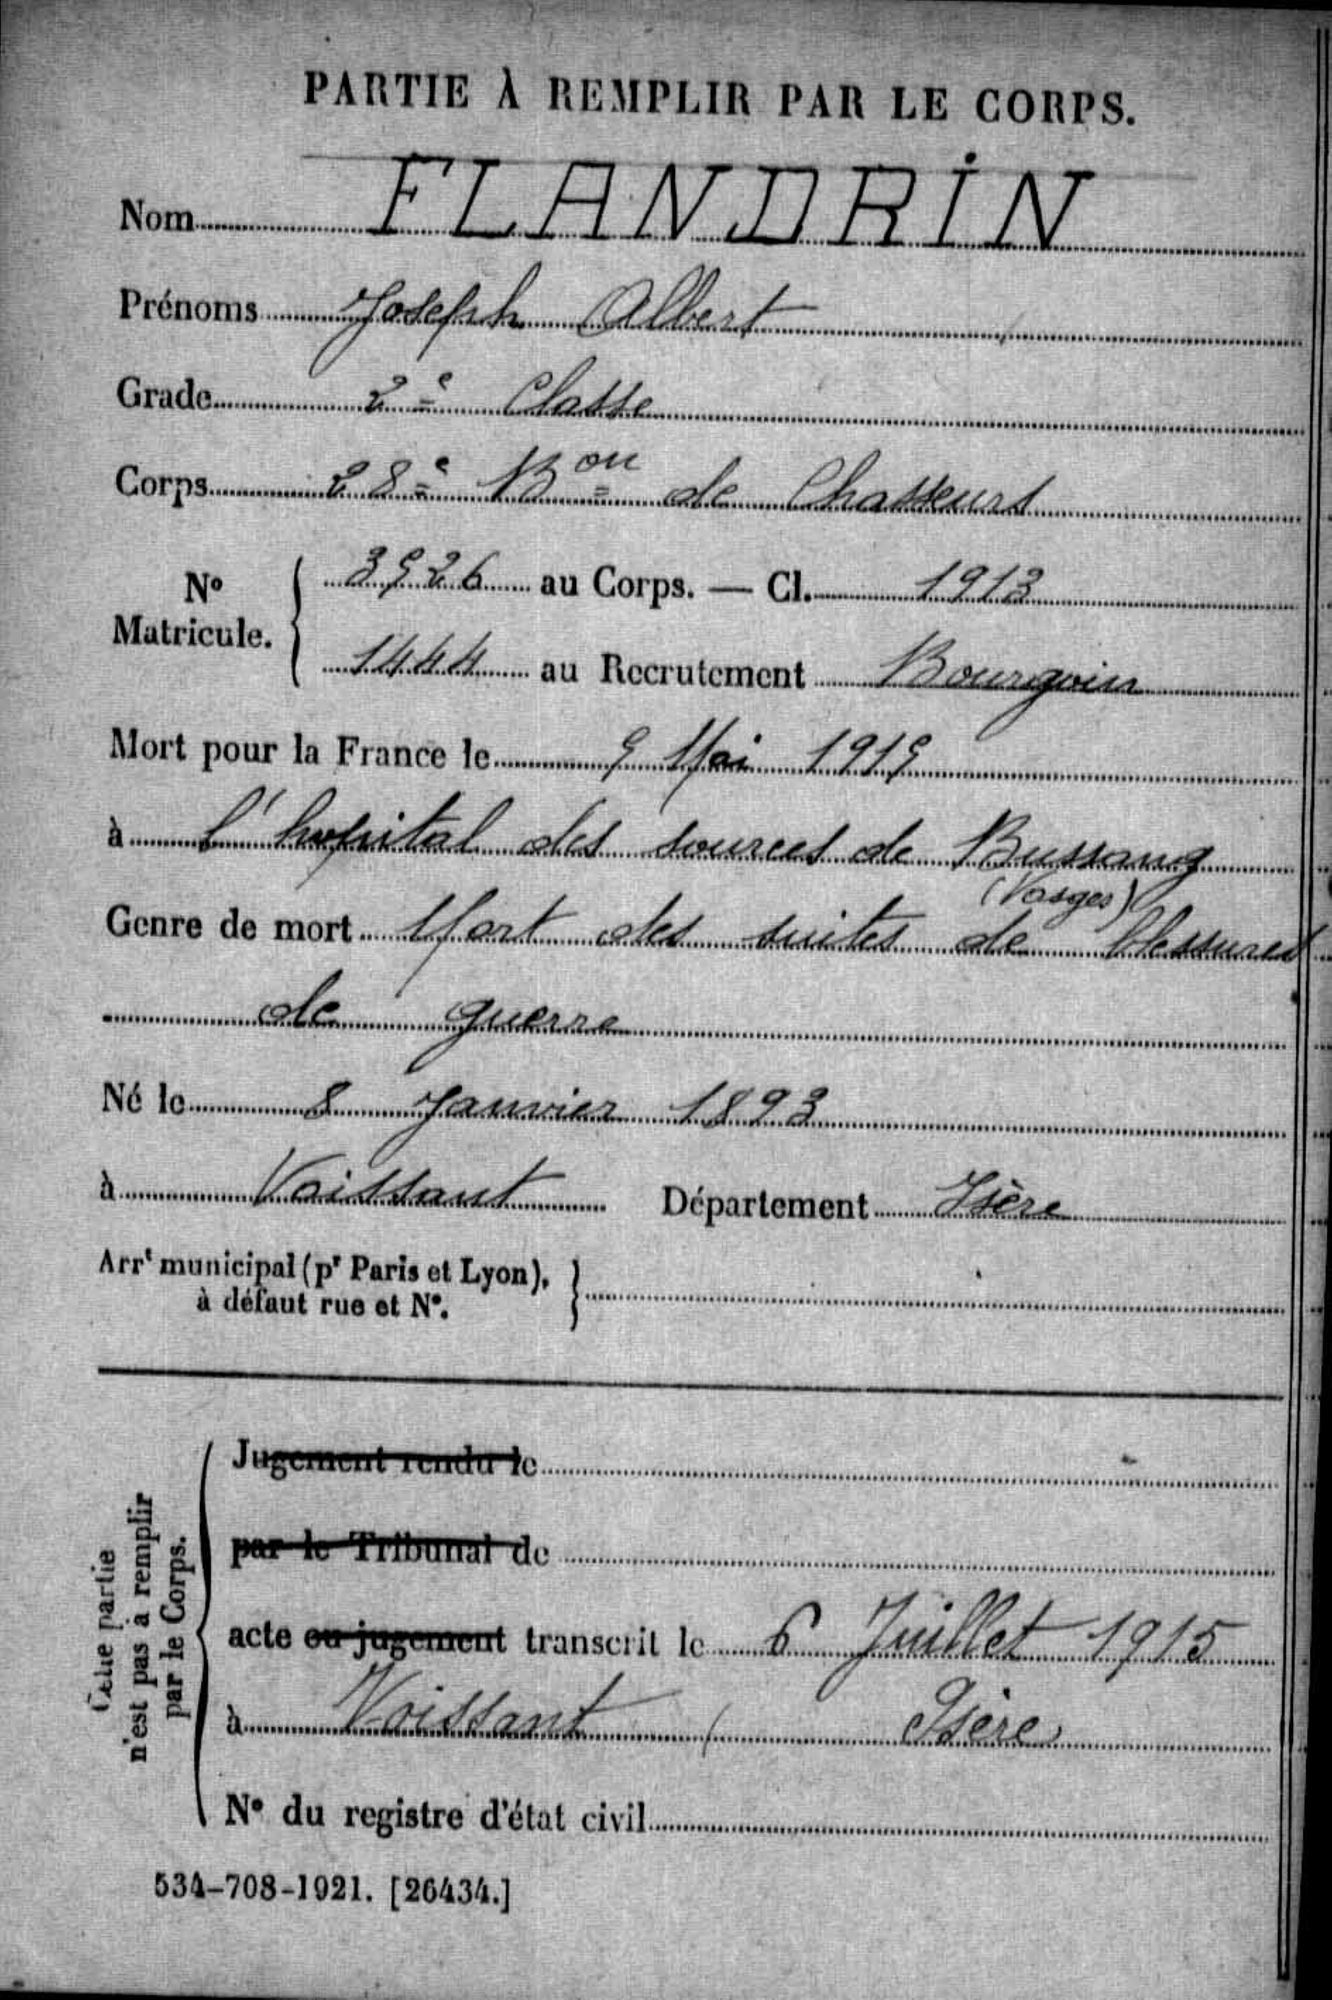 PARTIE À REMPLIR PAR LE CORPS.
Nom FLANDRIN
Prénoms Joseph Albert
Grade 2e Classe
Corps 28e Bon de Chasseurs
No Matricule. 3526 au Corps. — Cl. 1913
1444 au Recrutement Bourgoin
Mort pour la France le 5 Mai 1915
à l'hopital des sources de Bussang
(Vosges)
Genre de mort Mort des suites de blessures
de guerre
Né le 8 Janvier 1893
à Voissant Département Isère
Arrt municipal (pr Paris et Lyon),
à défaut rue et No.
Cette partie
n'est pas à remplir
par le Corps.
Jugement rendu le
par le Tribunal de
acte ou jugement transcrit le 6 Juillet 1915
à Voissant / Isère
No du registre d'état civil
534-708-1921. [26434.]